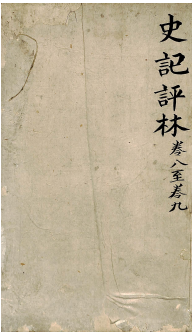 史記評林卷八至卷九